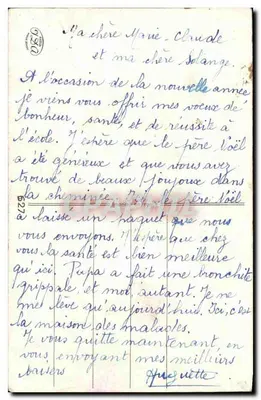 Ma chère Marie-Claude
et ma chère Solange.
A l'occasion de la nouvelle année
je viens vous offrir mes voeux de
bonheur, santé, et de réussite à
l'école. J'espère que le père Noël
a été généreux et que vous avez
trouvé de beaux joujoux dans
la cheminée. Ici le père Noël
a laissé un paquet que nous
vous envoyons. J'espère que chez
vous la santé est bien meilleure
qu'ici. Papa a fait une bronchite
grippale et moi autant. Je ne
me lève qu'aujourd'hui. Ici, c'est
la maison des malades.
Je vous quitte maintenant, en
vous envoyant mes meilleurs
baisers
Huguette